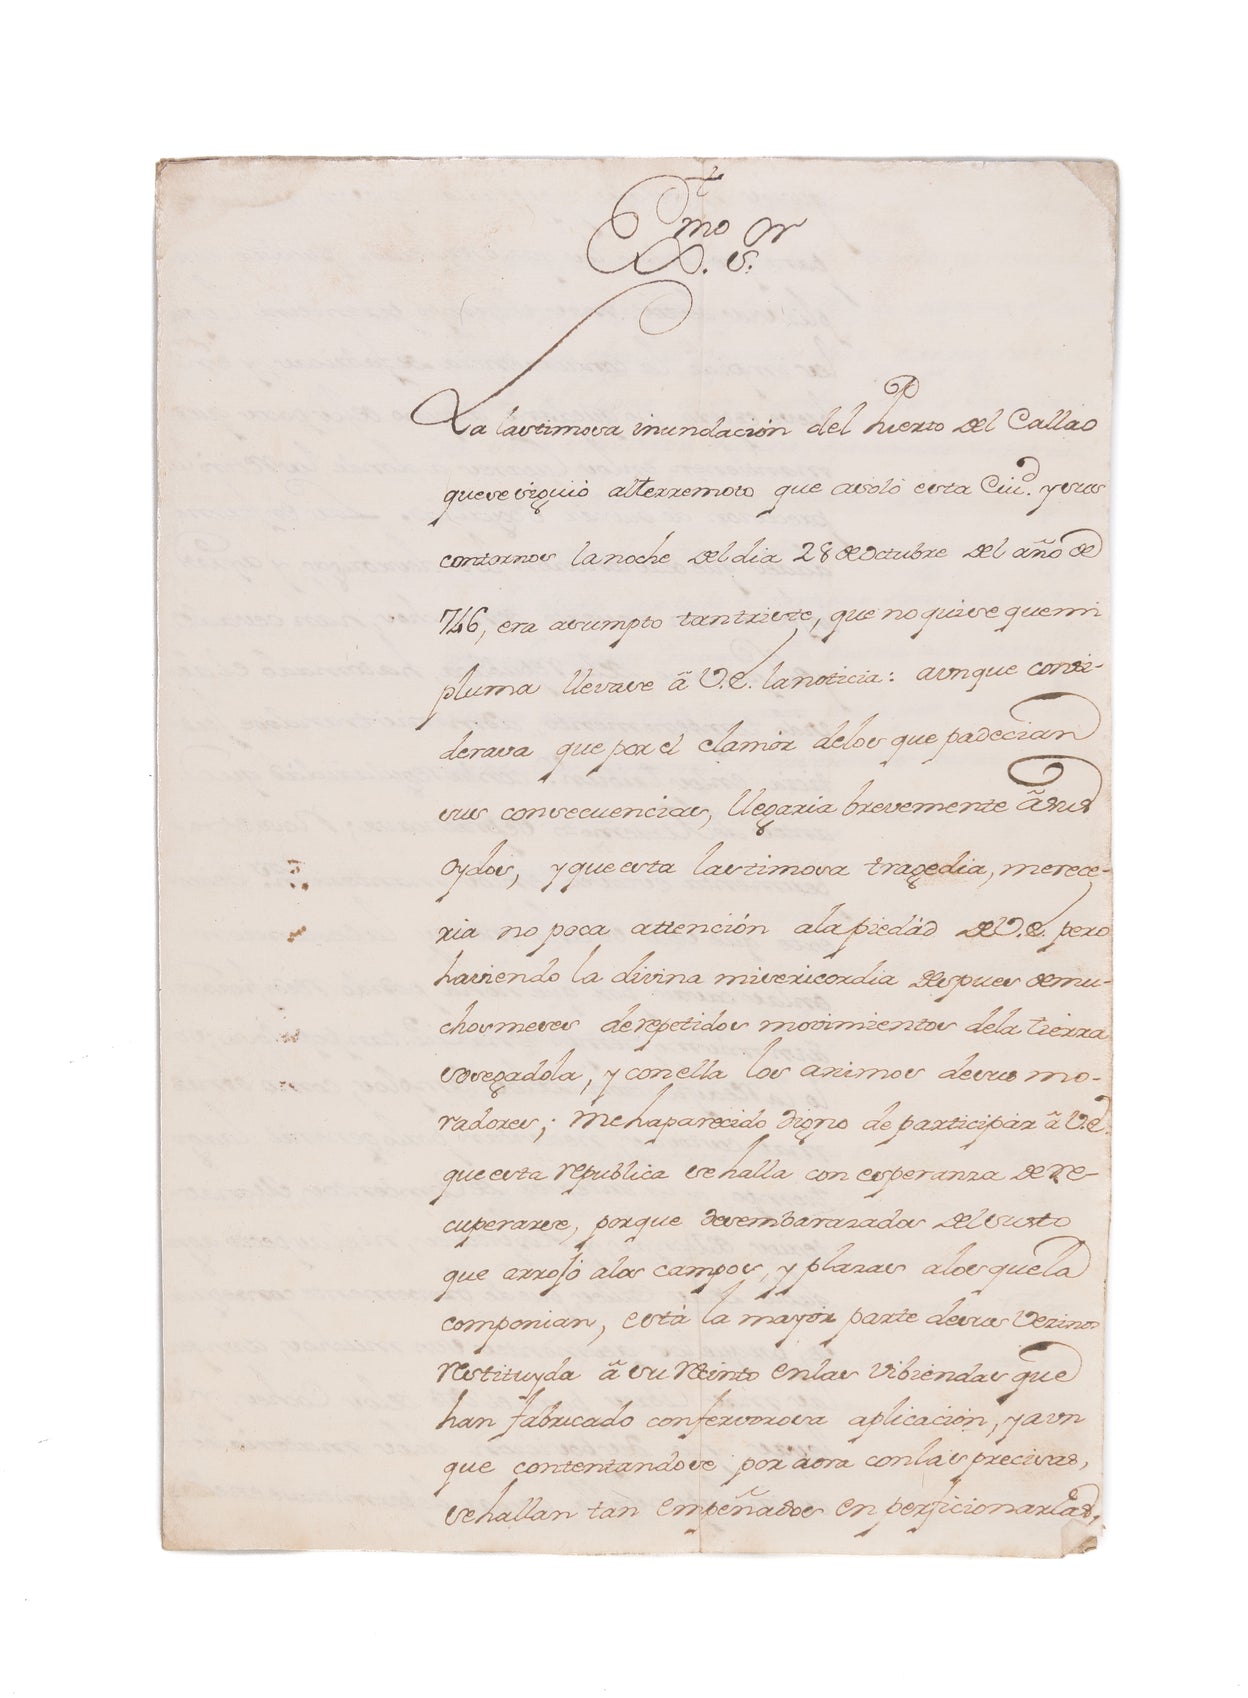 †
Ex.mo S.or
La lastimosa inundación del Puerto del Callao
que se siguió al terremoto que asoló esta Ciu.d y sus
contornos la noche del dia 28 de Octubre del año de
746, era asumpto tan triste, que no quise que mi
pluma llevase â V.E. la noticia: aunque consi-
derava que por el clamòr de los que padecian
sus consecuencias, llegaria brevemente â sus
oydos, y que esta lastimosa tragedia, merece-
ria no poca attención a la piedád de V.E. pero
haviendo la divina misericordia despues de mu-
chos meses de repetidos movimientos de la tierra
sosegadola, y con ella los animos de sus mo-
radores; me ha parecido digno de participár â V.E.
que esta republica se halla con esperanza de re-
cuperarse, porque desembarazados del susto
que arrojó a los campos, y plazas a los que la
componian, está la mayór parte de sus vezinos
restituyda â su recinto en las vibiendas que
han fabricado con fervorosa aplicación, y aun
que contentandose por aora con las precisas,
se hallan tan empeñados en perficionarlas,